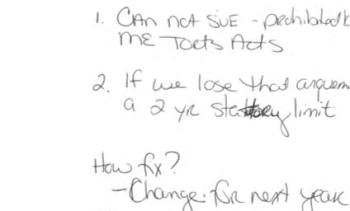 1. CAn not SUE - prohibited
ME Torts Acts
2. If we lose that argum
a 2 yr limit
How fix?
- Change for next year